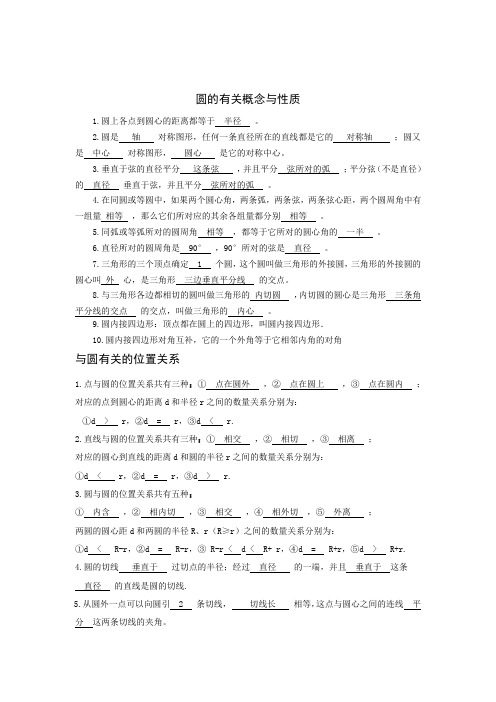 圆的有关概念与性质
1.圆上各点到圆心的距离都等于 半径 。
2.圆是 轴 对称图形，任何一条直径所在的直线都是它的 对称轴 ；圆又
是 中心 对称图形， 圆心 是它的对称中心。
3.垂直于弦的直径平分 这条弦 ，并且平分 弦所对的弧 ；平分弦（不是直径）
的 直径 垂直于弦，并且平分 弦所对的弧 。
4.在同圆或等圆中，如果两个圆心角，两条弧，两条弦，两条弦心距，两个圆周角中有
一组量 相等 ，那么它们所对应的其余各组量都分别 相等 。
5.同弧或等弧所对的圆周角 相等 ，都等于它所对的圆心角的 一半 。
6.直径所对的圆周角是 90° ，90°所对的弦是 直径 。
7.三角形的三个顶点确定 1 个圆，这个圆叫做三角形的外接圆，三角形的外接圆的
圆心叫 外 心，是三角形 三边垂直平分线 的交点。
8.与三角形各边都相切的圆叫做三角形的 内切圆 ，内切圆的圆心是三角形 三条角
平分线的交点 的交点，叫做三角形的 内心 。
9.圆内接四边形：顶点都在圆上的四边形，叫圆内接四边形.
10.圆内接四边形对角互补，它的一个外角等于它相邻内角的对角
与圆有关的位置关系
1.点与圆的位置关系共有三种：① 点在圆外 ，② 点在圆上 ，③ 点在圆内 ；
对应的点到圆心的距离d和半径r之间的数量关系分别为：
①d > r，②d = r，③d < r.
2.直线与圆的位置关系共有三种：① 相交 ，② 相切 ，③ 相离 ；
对应的圆心到直线的距离d和圆的半径r之间的数量关系分别为：
①d < r，②d = r，③d > r.
3.圆与圆的位置关系共有五种：
① 内含 ，② 相内切 ，③ 相交 ，④ 相外切 ，⑤ 外离 ；
两圆的圆心距d和两圆的半径R、r（R≥r）之间的数量关系分别为：
①d < R-r，②d = R-r，③ R-r < d < R+ r，④d = R+r，⑤d > R+r.
4.圆的切线 垂直于 过切点的半径；经过 直径 的一端，并且 垂直于 这条
直径 的直线是圆的切线.
5.从圆外一点可以向圆引 2 条切线， 切线长 相等，这点与圆心之间的连线 平
分 这两条切线的夹角。